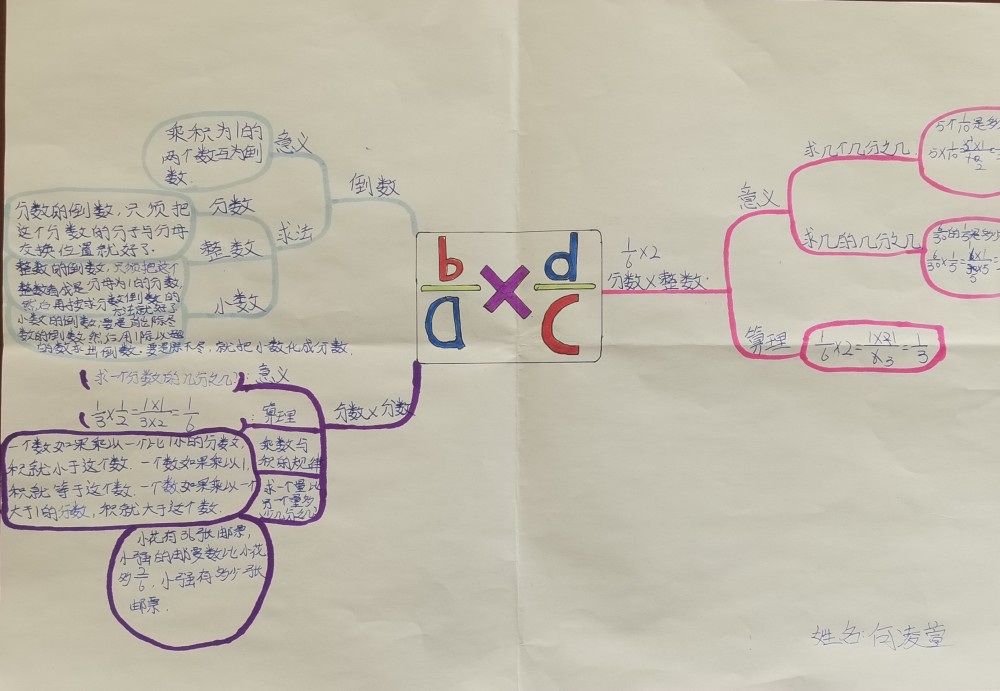 乘积为1的
两个数互为倒
数.
意义
倒数
分数的倒数,只须把
这个分数的分子与分母
交换位置就好了.
分数
求法
整数
整数的倒数,只须把这个
整数看成是分母为1的分数,
然后再按求分数倒数的
方法就好了
小数
小数的倒数,要是
数的倒数,然后用1除以
的数求出倒数.要是除不尽,就把小数化成分数.
b
a
×
d
c
求一个分数的几分之几?
意义
1/3×1/2=1×1/3×2=1/6
算理
分数×分数
一个数如果乘以一个比1小的分数,
积就小于这个数.一个数如果乘以1,
积就等于这个数.一个数如果乘以一个
大于1的分数,积就大于这个数.
乘数与
积的规律
求一个量比
另一个量多
少几分之几?
小花有36张邮票,
小强的邮票数比小花
多2/6,小强有多少张
邮票.
1/6×2
分数×整数
意义
求几个几分之几
5个1/10是多
5×1/10
求几的几分之几
6/30×1/5=
算理
1/6×2=1×2/6=1/3
姓名:向凌萱